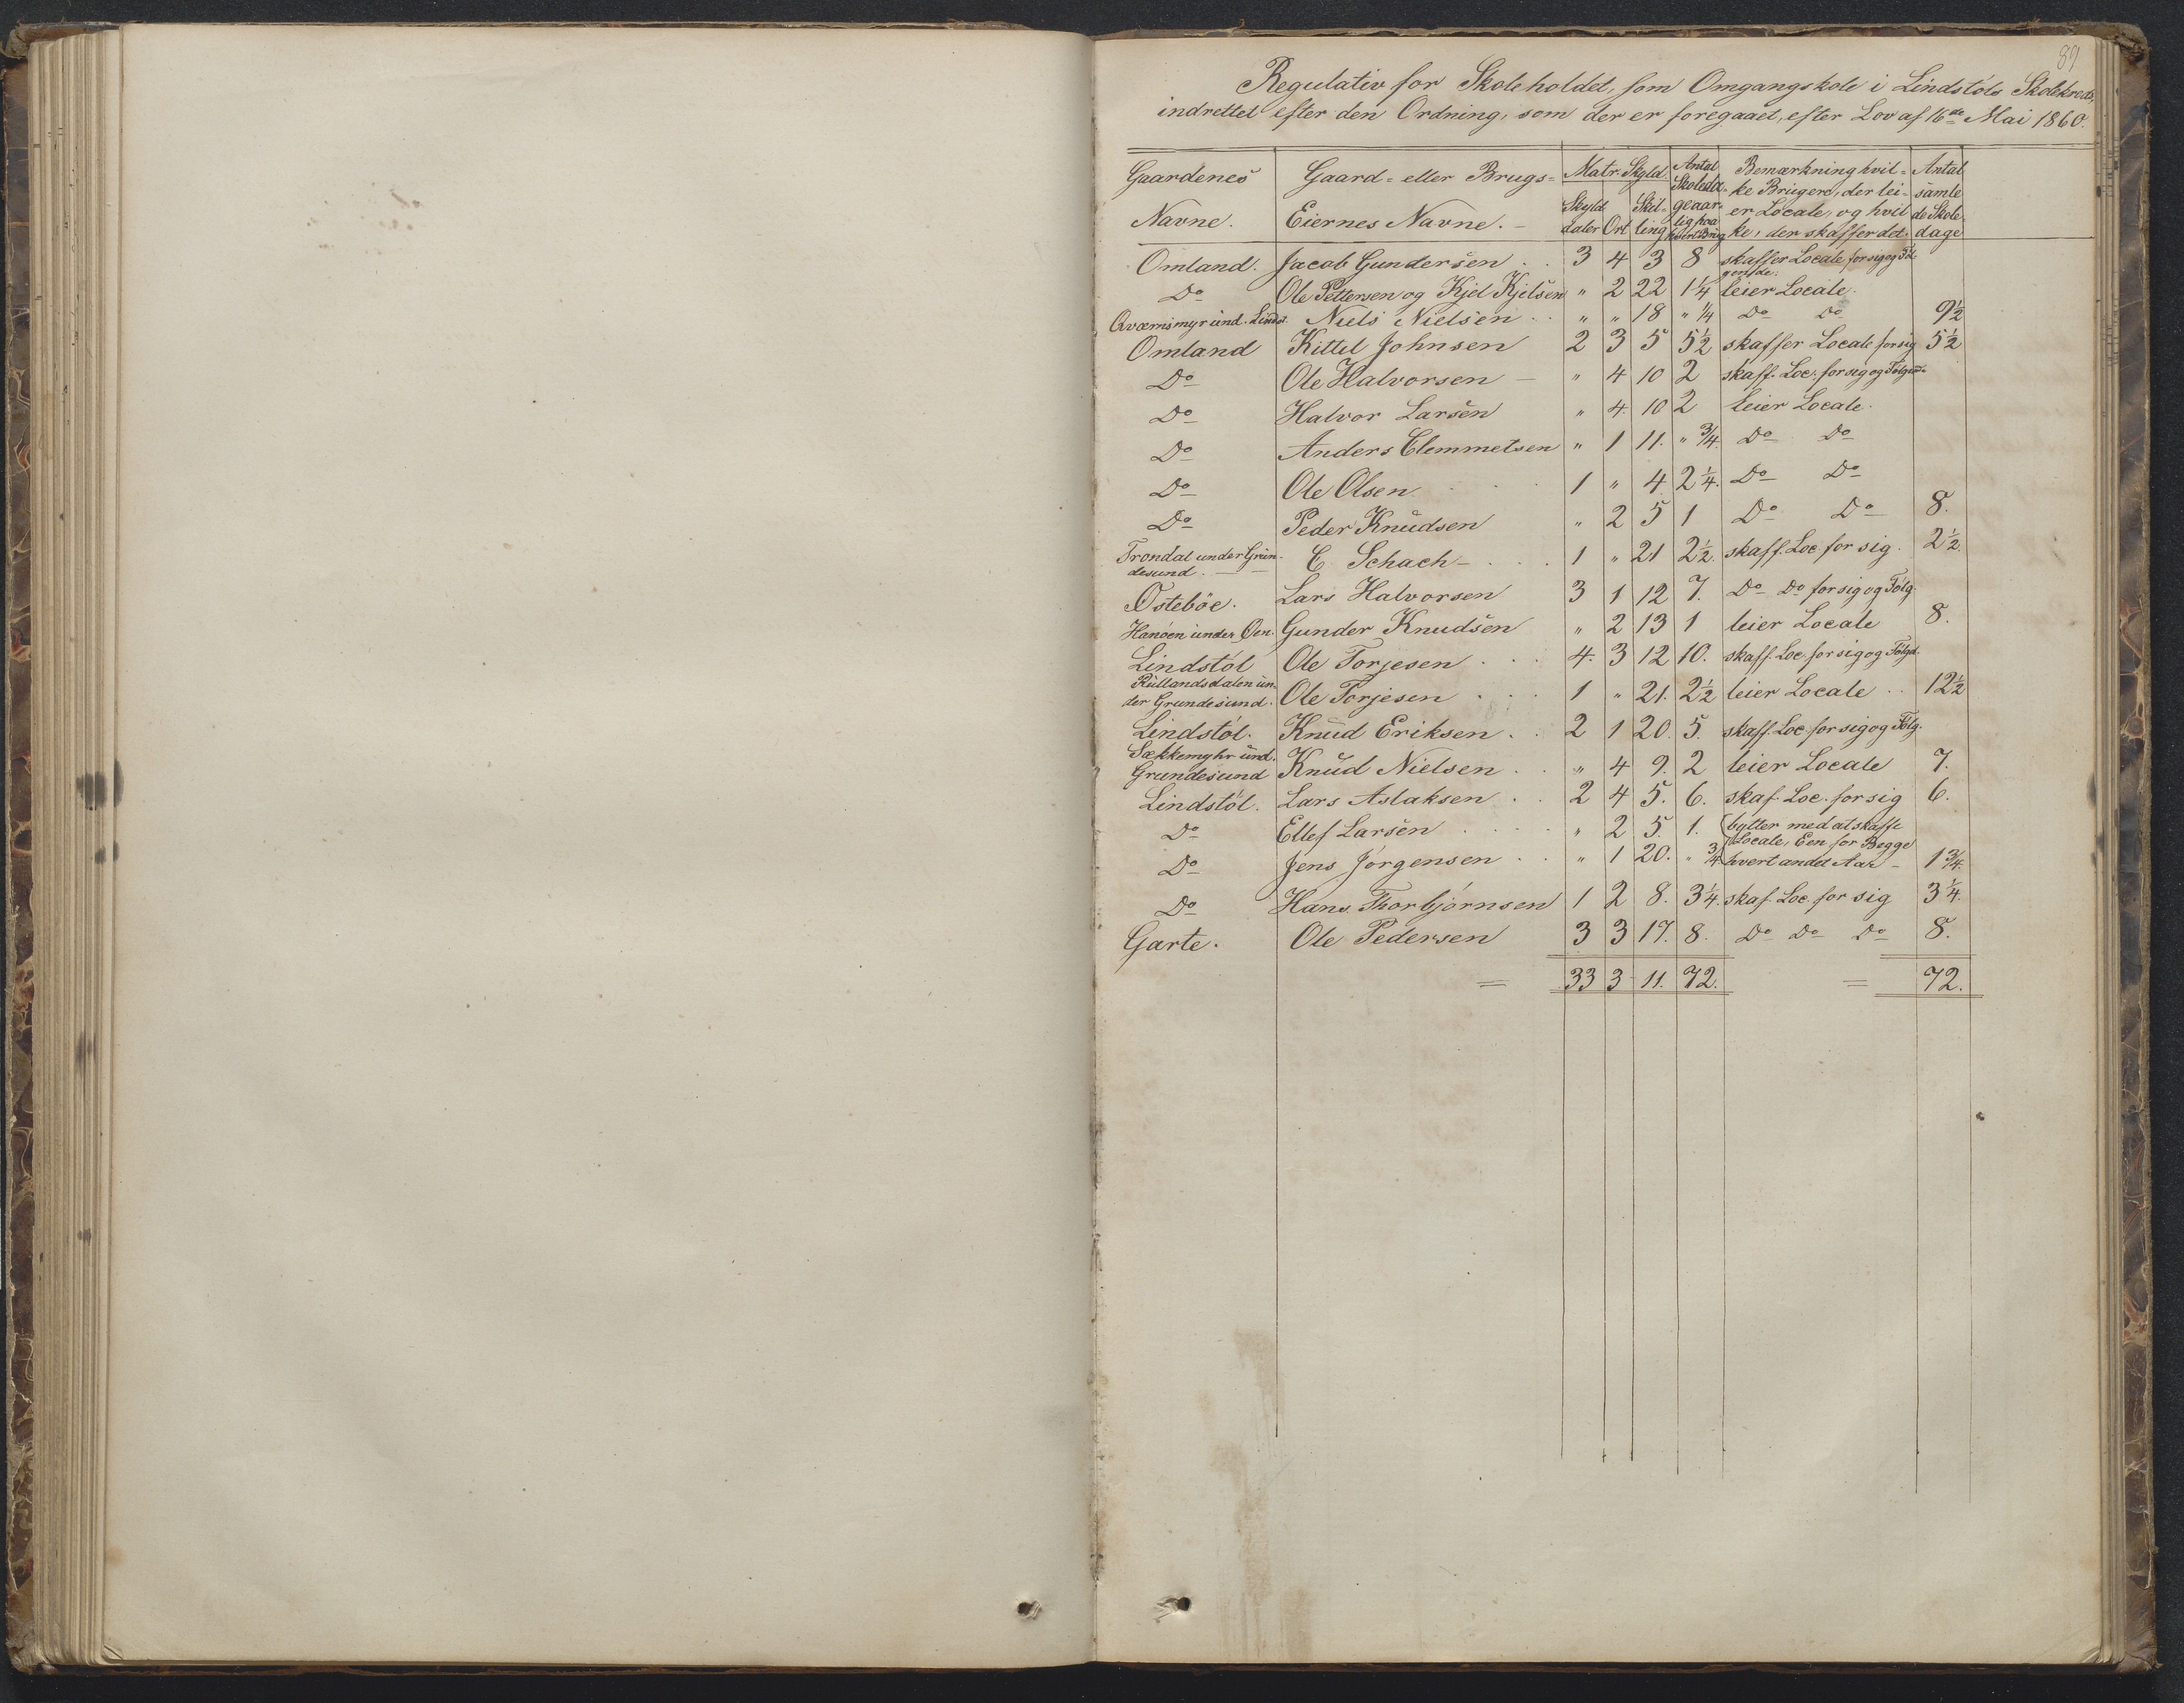 89
Regulativ for Skoleholdet, som Omgangskole i Lindstöls Skolekreds,
indrettet efter den Ordning, som der er foregaaet, efter Lov af 16de Mai 1860.
Gaardenes Navne. | Gaard- eller Brugs- Eiernes Navne. | Matr. Skyld. Skyld daler | Ort | Skil- ling | Antal Skoleda- ge aar- lig paa hvert Brug | Bemærkning hvil- ke Brugere, der lei- er Locale, og hvil ke, der skaffer det. | Antal samle de Skole- dage
Omland. Jacob Gundersen . . 3 4 3 8 skaffer Locale for sig og Föl- gende.
Do Ole Pettersen og Kjel Kjelsen " 2 22 1¼ leier Locale.
Qværnsmyr und. Lindst. Niels Nielsen . . " " 18 " ¼ Do Do 9½
Omland Kittel Johnsen 2 3 5 5½ skaffer Locale for sig 5½
Do Ole Halvorsen — " 4 10 2 skaff. Loc. for sig og Fölgende
Do Halvor Larsen " 4 10 2 leier Locale.
Do Anders Clemmetsen " 1 11. " ¾. Do Do
Do Ole Olsen . . . 1 " 4 2¼. Do Do
Do Peder Knudsen " 2 5 1 Do Do 8.
Trondal under Grun- desund. — C. Schach — . . . 1 " 21 2½. skaff. Loc for sig. 2½.
Östeböe. Lars Halvorsen 3 1 12 7. Do Do for sig og Fölg.
Hanöen under Öen. Gunder Knudsen " 2 13 1 leier Locale 8.
Lindstöl Ole Torjesen . . . 4. 3 12 10. skaff. Loc. for sig og Fölgd.
Rullandsdalen un- der Grundesund. Ole Torjesen . . . 1 " 21. 2½ leier Locale . . 12½
Lindstöl. Knud Eriksen . . 2 1 20. 5. skaff. Loc for sig og Fölg.
Sækkemyhr und. Grundesund Knud Nielsen . . " 4 9. 2 leier Locale 7.
Lindstöl. Lars Aslaksen . . 2 4 5. 6. skaf. Loc. for sig 6.
Do Ellef Larsen . . . . " 2 5. 1. bytter med at skaffe
Do Jens Jörgensen . . " 1 20. " ¾ Locale, Een for Begge hvert andet Aar — 1¾.
Do Hans Thorbjörnsen 1 2 8. 3¼. skaf. Loc. for sig 3¼.
Garte. Ole Pedersen 3 3 17. 8. Do Do Do 8.
= 33 3 11. 72. = 72.